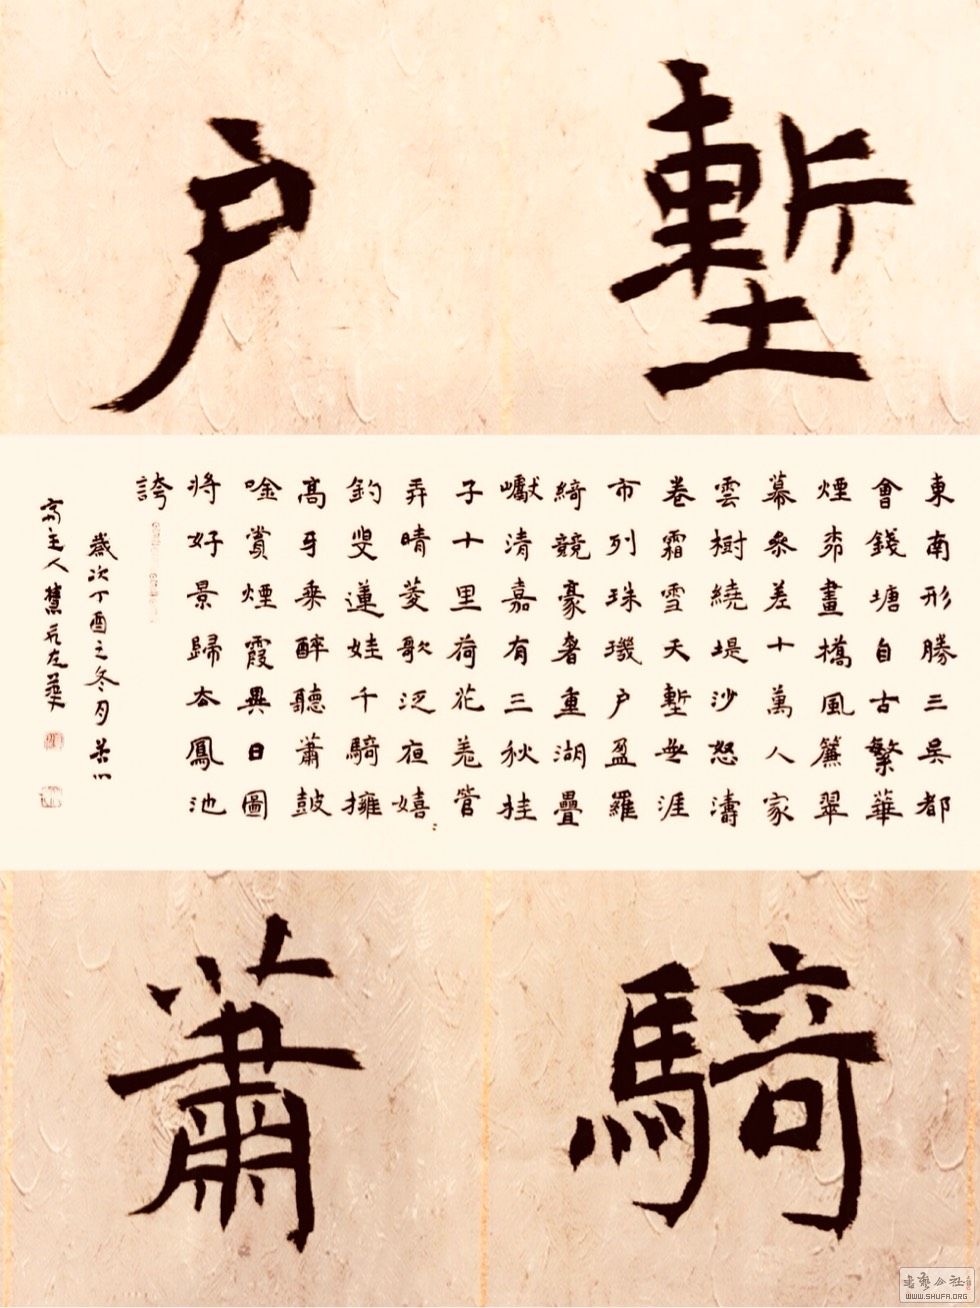 塹
户
東南形勝三吴都
會錢塘自古繁華
煙柳畫橋風簾翠
幕参差十萬人家
雲樹繞堤沙怒濤
卷霜雪天塹無涯
市列珠璣户盈羅
綺競豪奢重湖疊
巘清嘉有三秋桂
子十里荷花羌管
弄晴菱歌泛夜嬉
釣叟蓮娃千騎擁
高牙乘醉聽蕭鼓
吟賞煙霞異日圖
將好景歸去鳳池
誇
歲次丁酉之冬月
齋主人
騎
蕭
书艺公社
WWW.SHUFA.ORG